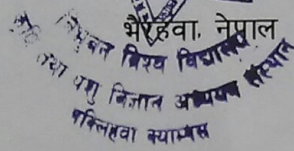 भैरहवा, नेपाल
त्रिभुवन विश्व विद्यालय
कृषि तथा पशु विज्ञान अध्ययन संस्थान
पक्लिहवा क्याम्पस